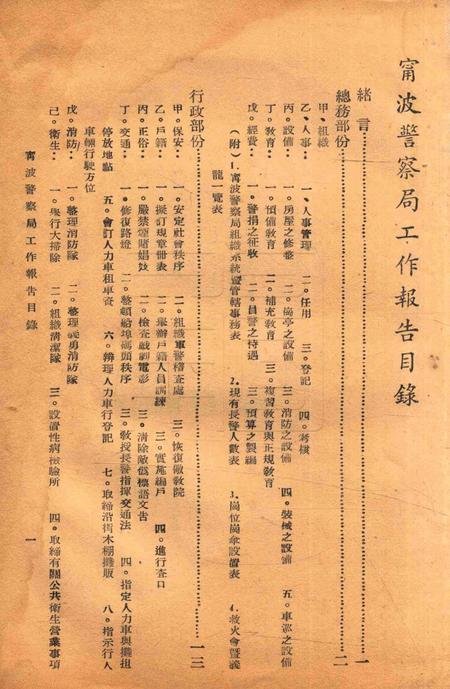 甯波警察局工作報告目錄
緒言……一
總務部份……二
甲.組織
乙.人事.. 一.人事管理 二.任用 三.登記 四.考核
丙.設備.. 一.房屋之修整 二.崗亭之設備 三.消防之設備 四.裝械之設備 五.車巡之設備
丁.敎育.. 一.預備敎育 二.補充敎育 三.複習敎育與正規敎育
戊.經費.. 一.警捐之征收 二.員警之待遇 三.預算之製編
(附) 1.甯波警察局組織系統暨管轄事務表 2.現有長警人數表 3.崗位崗傘設置表 4.救火會暨義
龍一覽表
行政部份……一三
甲.保安.. 一.安定社會秩序 二.組織軍警稽查處 三.恢復敎院
乙.戶籍.. 一.擬訂規章冊表 二.舉辦戶籍人員訓練 三.實施編戶 四.進行査口
丙.正俗.. 一.嚴禁煙賭娼妓 二.檢查戲劇電影 三.淸除敵僞標語文告
丁.交通.. 一.修復路燈 二.整頓船埠碼頭秩序 三.敎授長警指揮交通法 四.指定人力車與攤担
停放地點 五.會訂人力車租車資 六.辦理人力車行登記 七.取締沿街木棚攤販 八.指示行人
車輛行駛方位
戊.消防.. 一.整理消防隊 二.整理義勇消防隊
己.衛生.. 一.舉行大掃除 二.組織淸潔隊 三.設置性病檢驗所 四.取締有關公共衛生營業事項
甯波警察局工作報告目錄 一